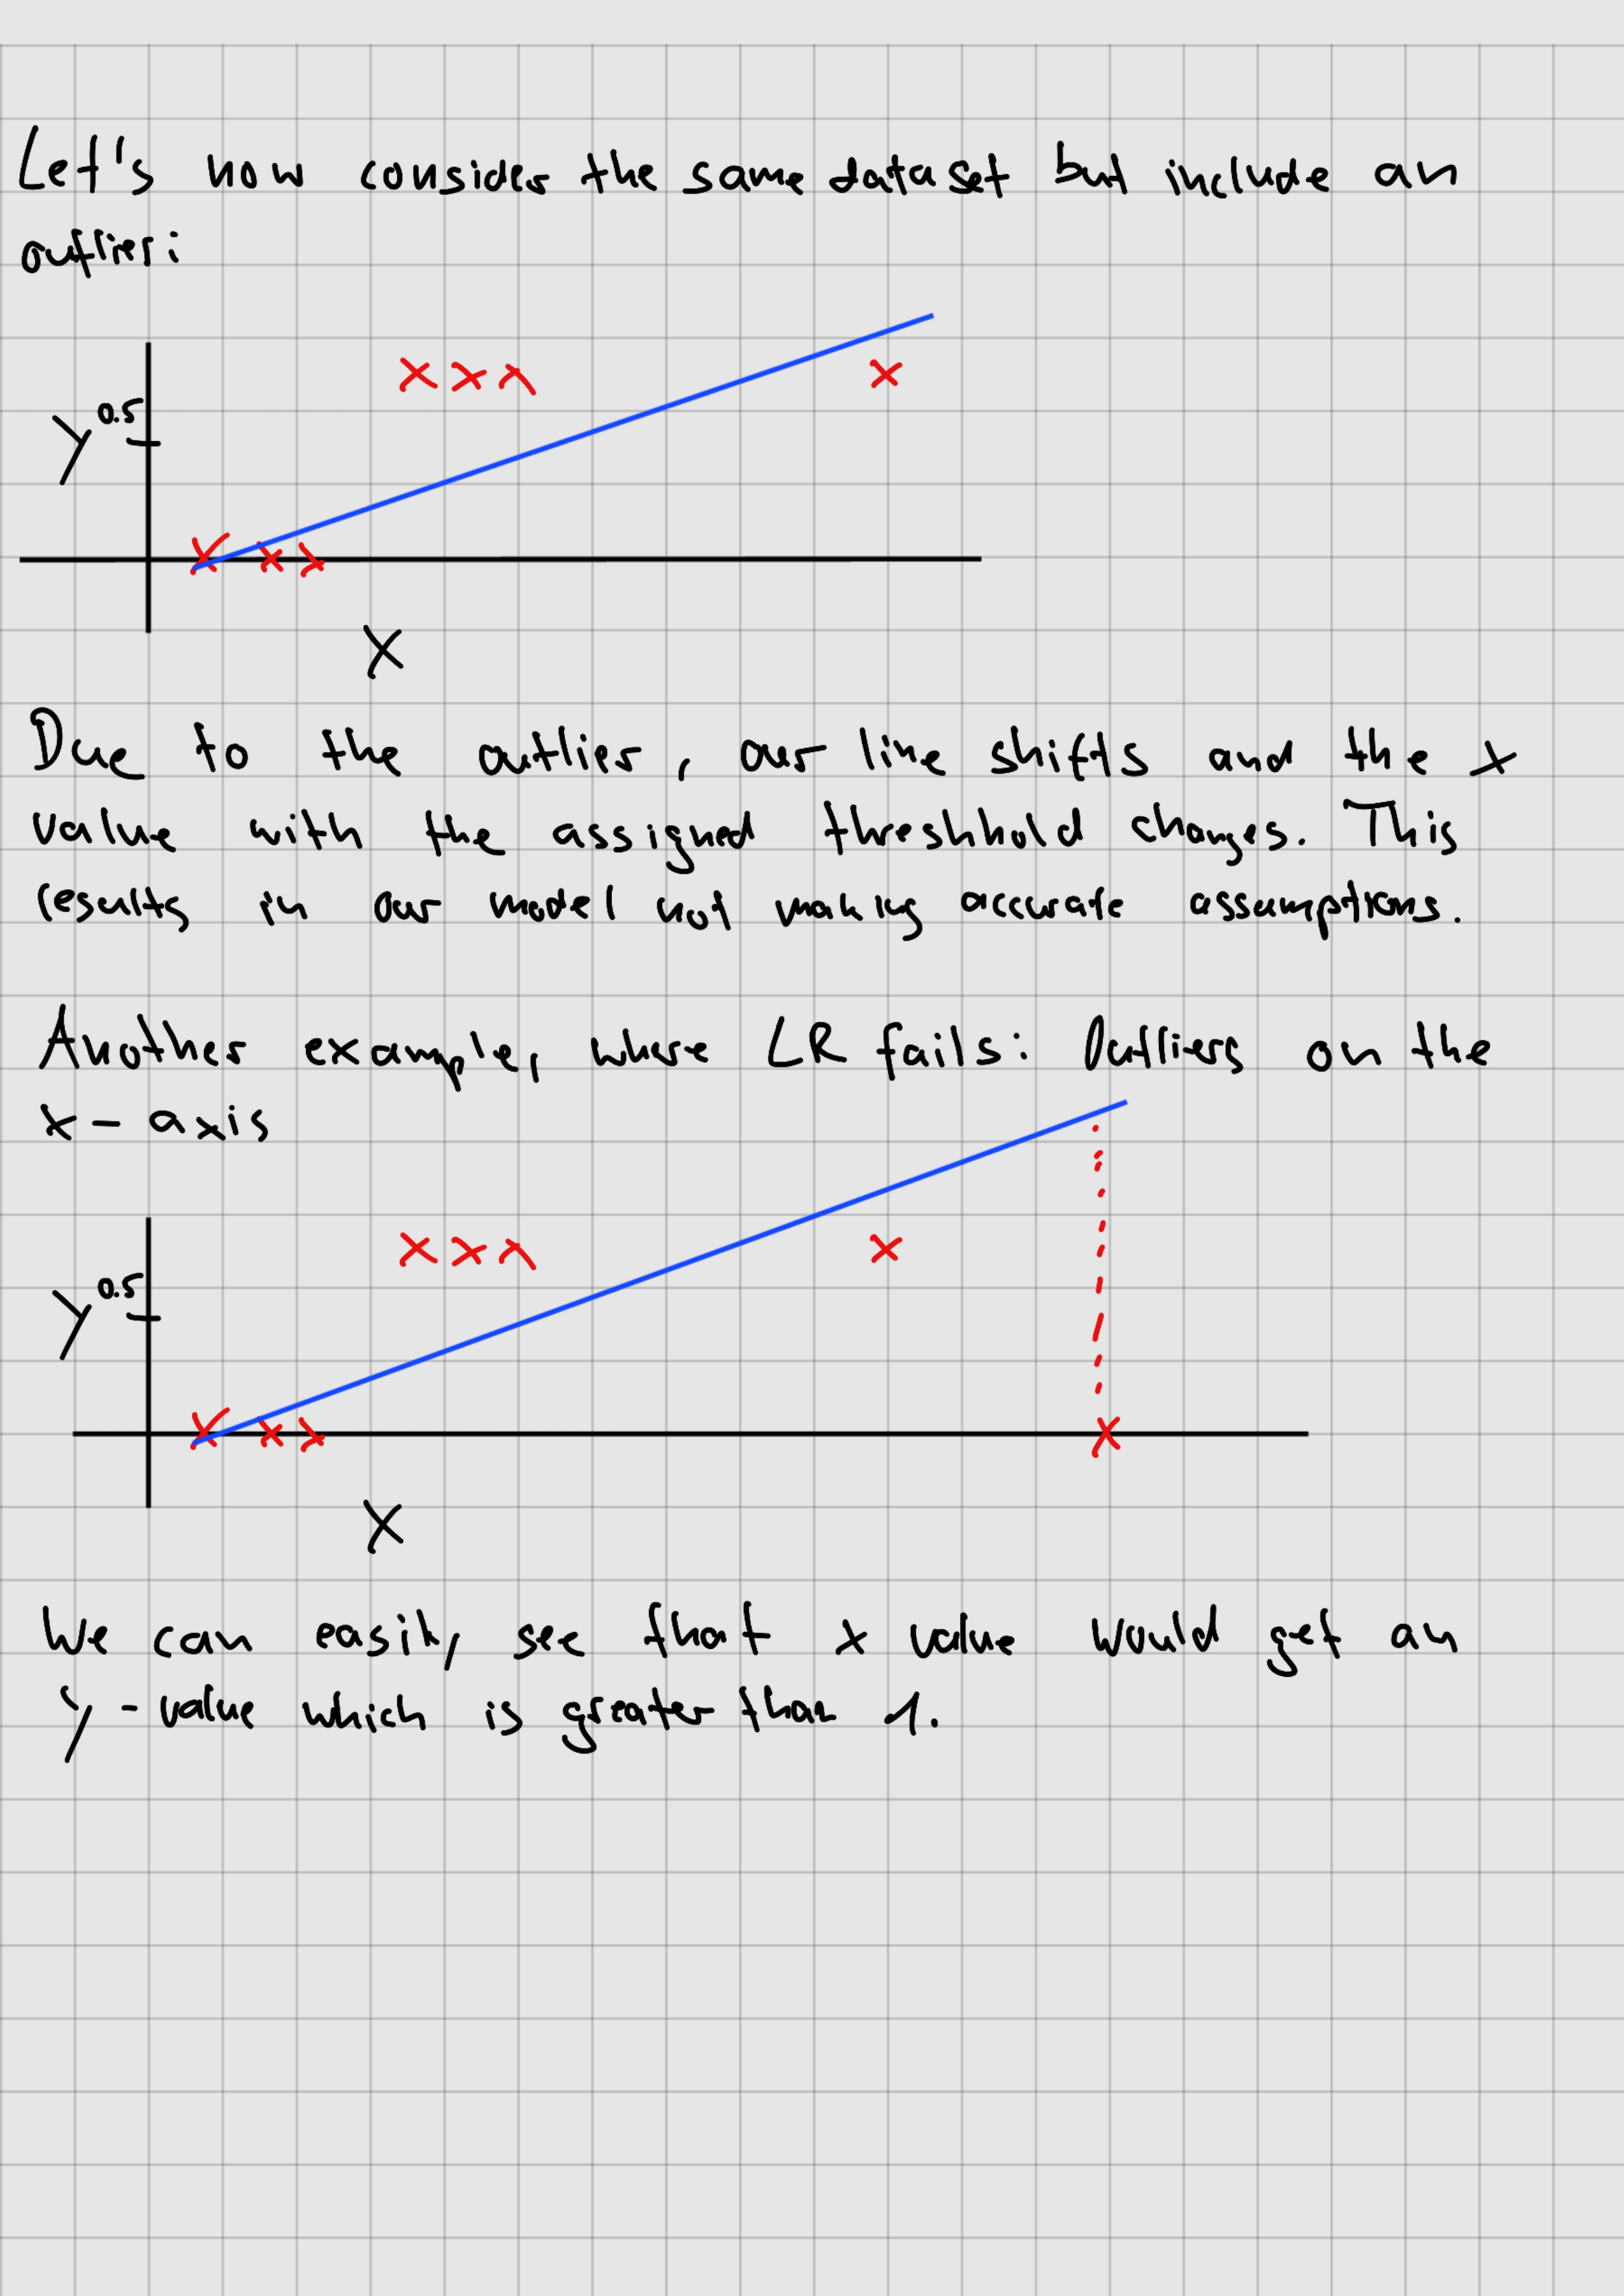 Let's now consider the same dataset but include an
outlier:
0.5
y
x
Due to the outlier, our line shifts and the x
value with the assigned threshhold changes. This
results in our model not making accurate assumptions.
Another example, where LR fails: Outliers on the
x-axis
0.5
y
x
We can easily see that x value would get an
y-value which is greater than 1.